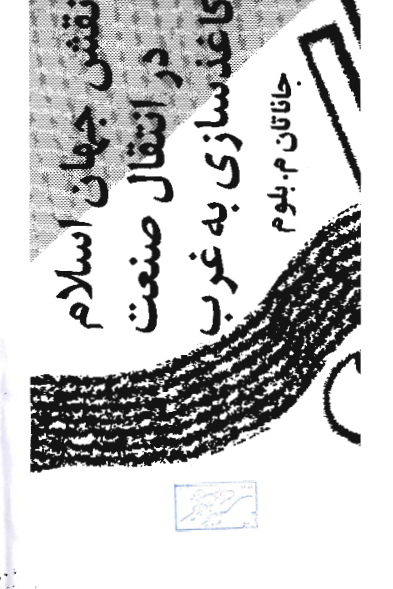 نقش جهان اسلام
در انتقال صنعت
کاغذسازی به غرب
جاناتان م. بلوم